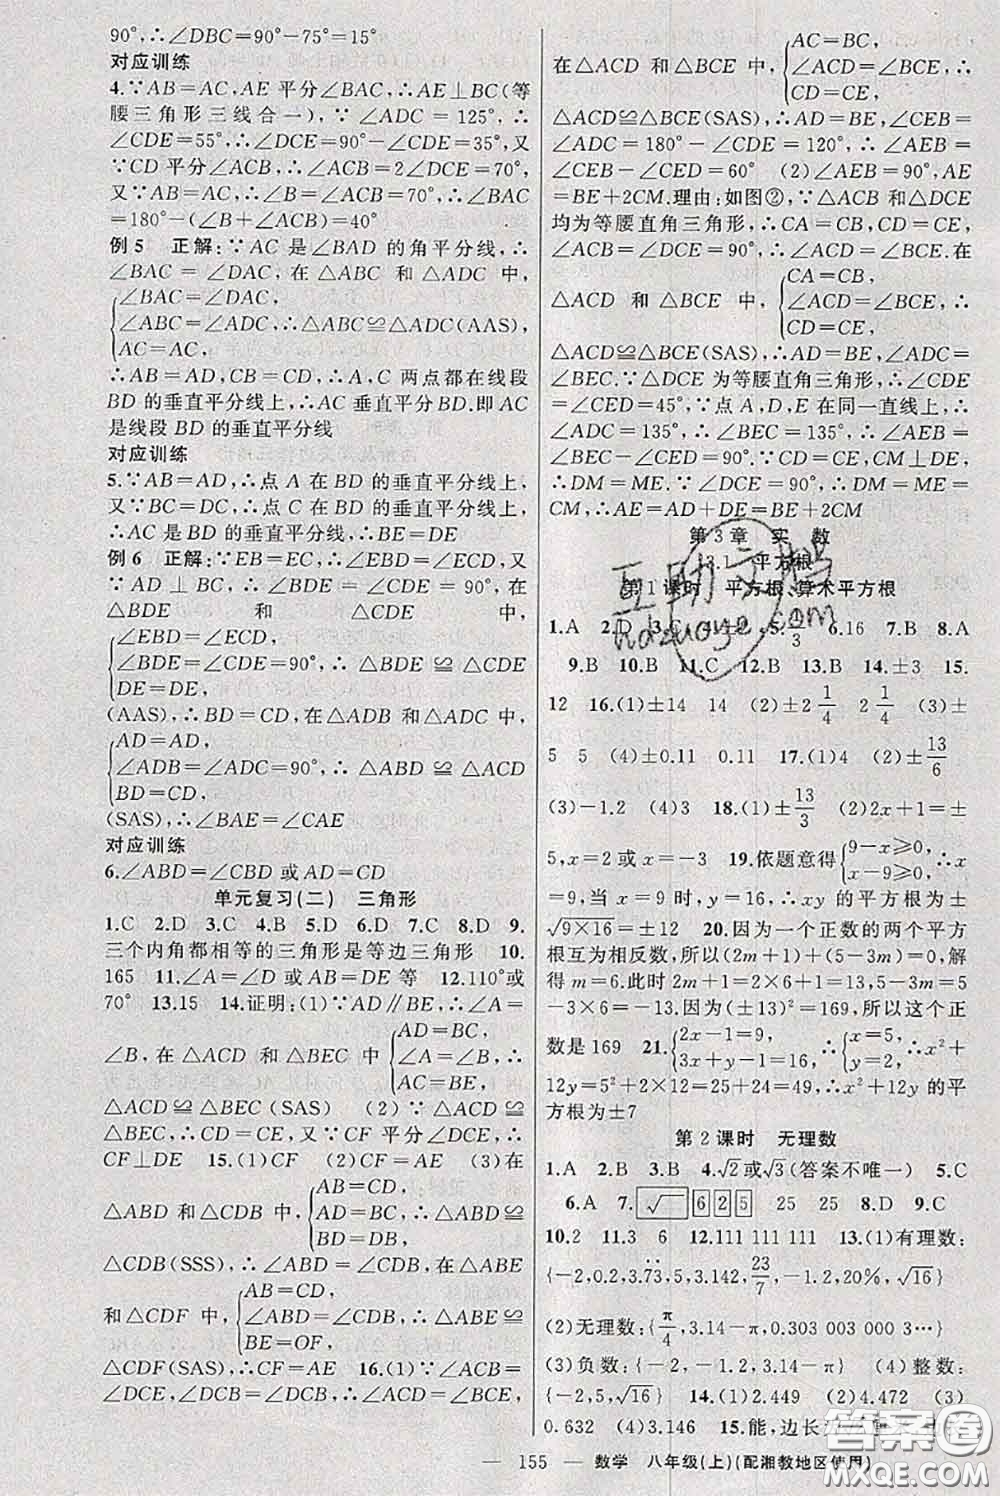 90°,∴∠DBC=90°-75°=15°
对应训练
4.∵AB=AC,AE平分∠BAC,∴AE⊥BC(等
腰三角形三线合一),∵∠ADC=125°,∴
∠CDE=55°,∴∠DCE=90°-∠CDE=35°,又
∵CD平分∠ACB,∴∠ACB=2∠DCE=70°,
又∵AB=AC,∴∠B=∠ACB=70°,∴∠BAC
=180°-(∠B+∠ACB)=40°
例5 正解:∵AC是∠BAD的角平分线,∴
∠BAC=∠DAC,在△ABC和△ADC中,
∠BAC=∠DAC,
∠ABC=∠ADC,∴△ABC≌△ADC(AAS),
AC=AC,
∴AB=AD,CB=CD,∴A,C两点都在线段
BD的垂直平分线上,∴AC垂直平分BD.即AC
是线段BD的垂直平分线
对应训练
5.∵AB=AD,∴点A在BD的垂直平分线上,
又∵BC=DC,∴点C在BD的垂直平分线上,
∴AC是BD的垂直平分线,∴BE=DE
例6 正解:∵EB=EC,∴∠EBD=∠ECD,又
∵AD⊥BC,∴∠BDE=∠CDE=90°,在
△BDE和△CDE中,
∠EBD=∠ECD,
∠BDE=∠CDE=90°,∴△BDE≌△CDE
DE=DE,
(AAS),∴BD=CD,在△ADB和△ADC中,
AD=AD,
∠ADB=∠ADC=90°,∴△ABD≌△ACD
BD=CD,
(SAS),∴∠BAE=∠CAE
对应训练
6.∠ABD=∠CBD或AD=CD
单元复习(二) 三角形
1.C 2.D 3.C 4.C 5.D 6.D 7.C 8.D 9.
三个内角都相等的三角形是等边三角形 10.
165 11.∠A=∠D或AB=DE等 12.110°或
70° 13.15 14.证明:(1)∵AD∥BE,∴∠A=
AD=BC,
∠B,在△ACD和△BEC中 ∠A=∠B,∴
AC=BE,
△ACD≌△BEC(SAS) (2)∵△ACD≌
△BEC,∴CD=CE,又∵CF平分∠DCE,∴
CF⊥DE 15.(1)CF (2)CF=AE (3)在
AB=CD,
△ABD和△CDB中, AD=BC,∴△ABD≌
BD=DB,
△CDB(SSS),∴∠ABD=∠CDB,在△ABE
AB=CD,
和△CDF中, ∠ABD=∠CDB,∴△ABE≌
BE=OF,
△CDF(SAS),∴CF=AE 16.(1)∵∠ACB=
∠DCE,∠ACD=∠ACB-∠DCB,∠BCE=
∠DCE-∠DCB,∴∠ACD=∠BCE,
AC=BC,
在△ACD和△BCE中, ∠ACD=∠BCE,∴
CD=CE,
△ACD≌△BCE(SAS),∴AD=BE,∠CEB=
∠ADC=180°-∠CDE=120°,∴∠AEB=
∠CEB-∠CED=60° (2)∠AEB=90°,AE=
BE+2CM.理由:如图②,∵△ACB和△DCE
均为等腰直角三角形,∴CA=CB,CD=CE,
∠ACB=∠DCE=90°,∴∠ACD=∠BCE.在
CA=CB,
△ACD和△BCE中, ∠ACD=∠BCE,∴
CD=CE,
△ACD≌△BCE(SAS),∴AD=BE,∠ADC=
∠BEC.∵△DCE为等腰直角三角形,∴∠CDE=
∠CED=45°,∵点A,D,E在同一直线上,∴
∠ADC=135°,∴∠BEC=135°,∴∠AEB=
∠BEC-∠CED=90°.∵CD=CE,CM⊥DE,
∴DM=ME.∵∠DCE=90°,∴DM=ME=
CM,∴AE=AD+DE=BE+2CM
第3章 实数
3.1 平方根
第1课时 平方根、算术平方根
1.A 2.D 3.C 4.±2 5. 6.16 7.B 8.A
9.B 10.B 11.C 12.B 13.B 14.±3 15.
12 16.(1)±14 14 (2)±2 1/4 2 1/4 (3)±
5 5 (4)±0.11 0.11 17.(1)5 (2)±13/6
(3)-1.2 (4)3 18.(1)±13/3 (2)2x+1=±
5,x=2或x=-3 19.依题意得 9-x≥0, x-9≥0, ∴x
=9,当x=9时,y=16,∴xy的平方根为±
√9×16=±12 20.因为一个正数的两个平方
根互为相反数,所以(2m+1)+(5-3m)=0,
解得m=6.此时2m+1=2×6+1=13,5-3m=5
-3×6=-13.因为(±13)²=169,所以这个正
数是169 21. 2x-1=9, 3x+y-1=16, ∴ x=5, y=2, ∴x²+
12y=5²+2×12=25+24=49,∴x²+12y的平
方根为±7
第2课时 无理数
1.A 2.B 3.B 4.√2或√3(答案不唯一) 5.C
6.A 7. √ 6 2 5 25 25 8.D 9.C
10.2 11.3 6 12.111 111 111 13.(1)有理数:
{-2,0.2,3.73,5,23/7,-1.2,20%,√16}
(2)无理数:{π/4,3.14-π,0.303 003 000 3…}
(3)负数:{-2,-1.2,3.14-π} (4)整数:
{-2,5,√16} 14.(1)2.449 (2)4.472 (3)
0.632 (4)3.146 15.能,边长
— 155 — 数学 八年级(上)(配湘教地区使用)
互助文档
hdzuoye.com
答案圈
MXQE.COM